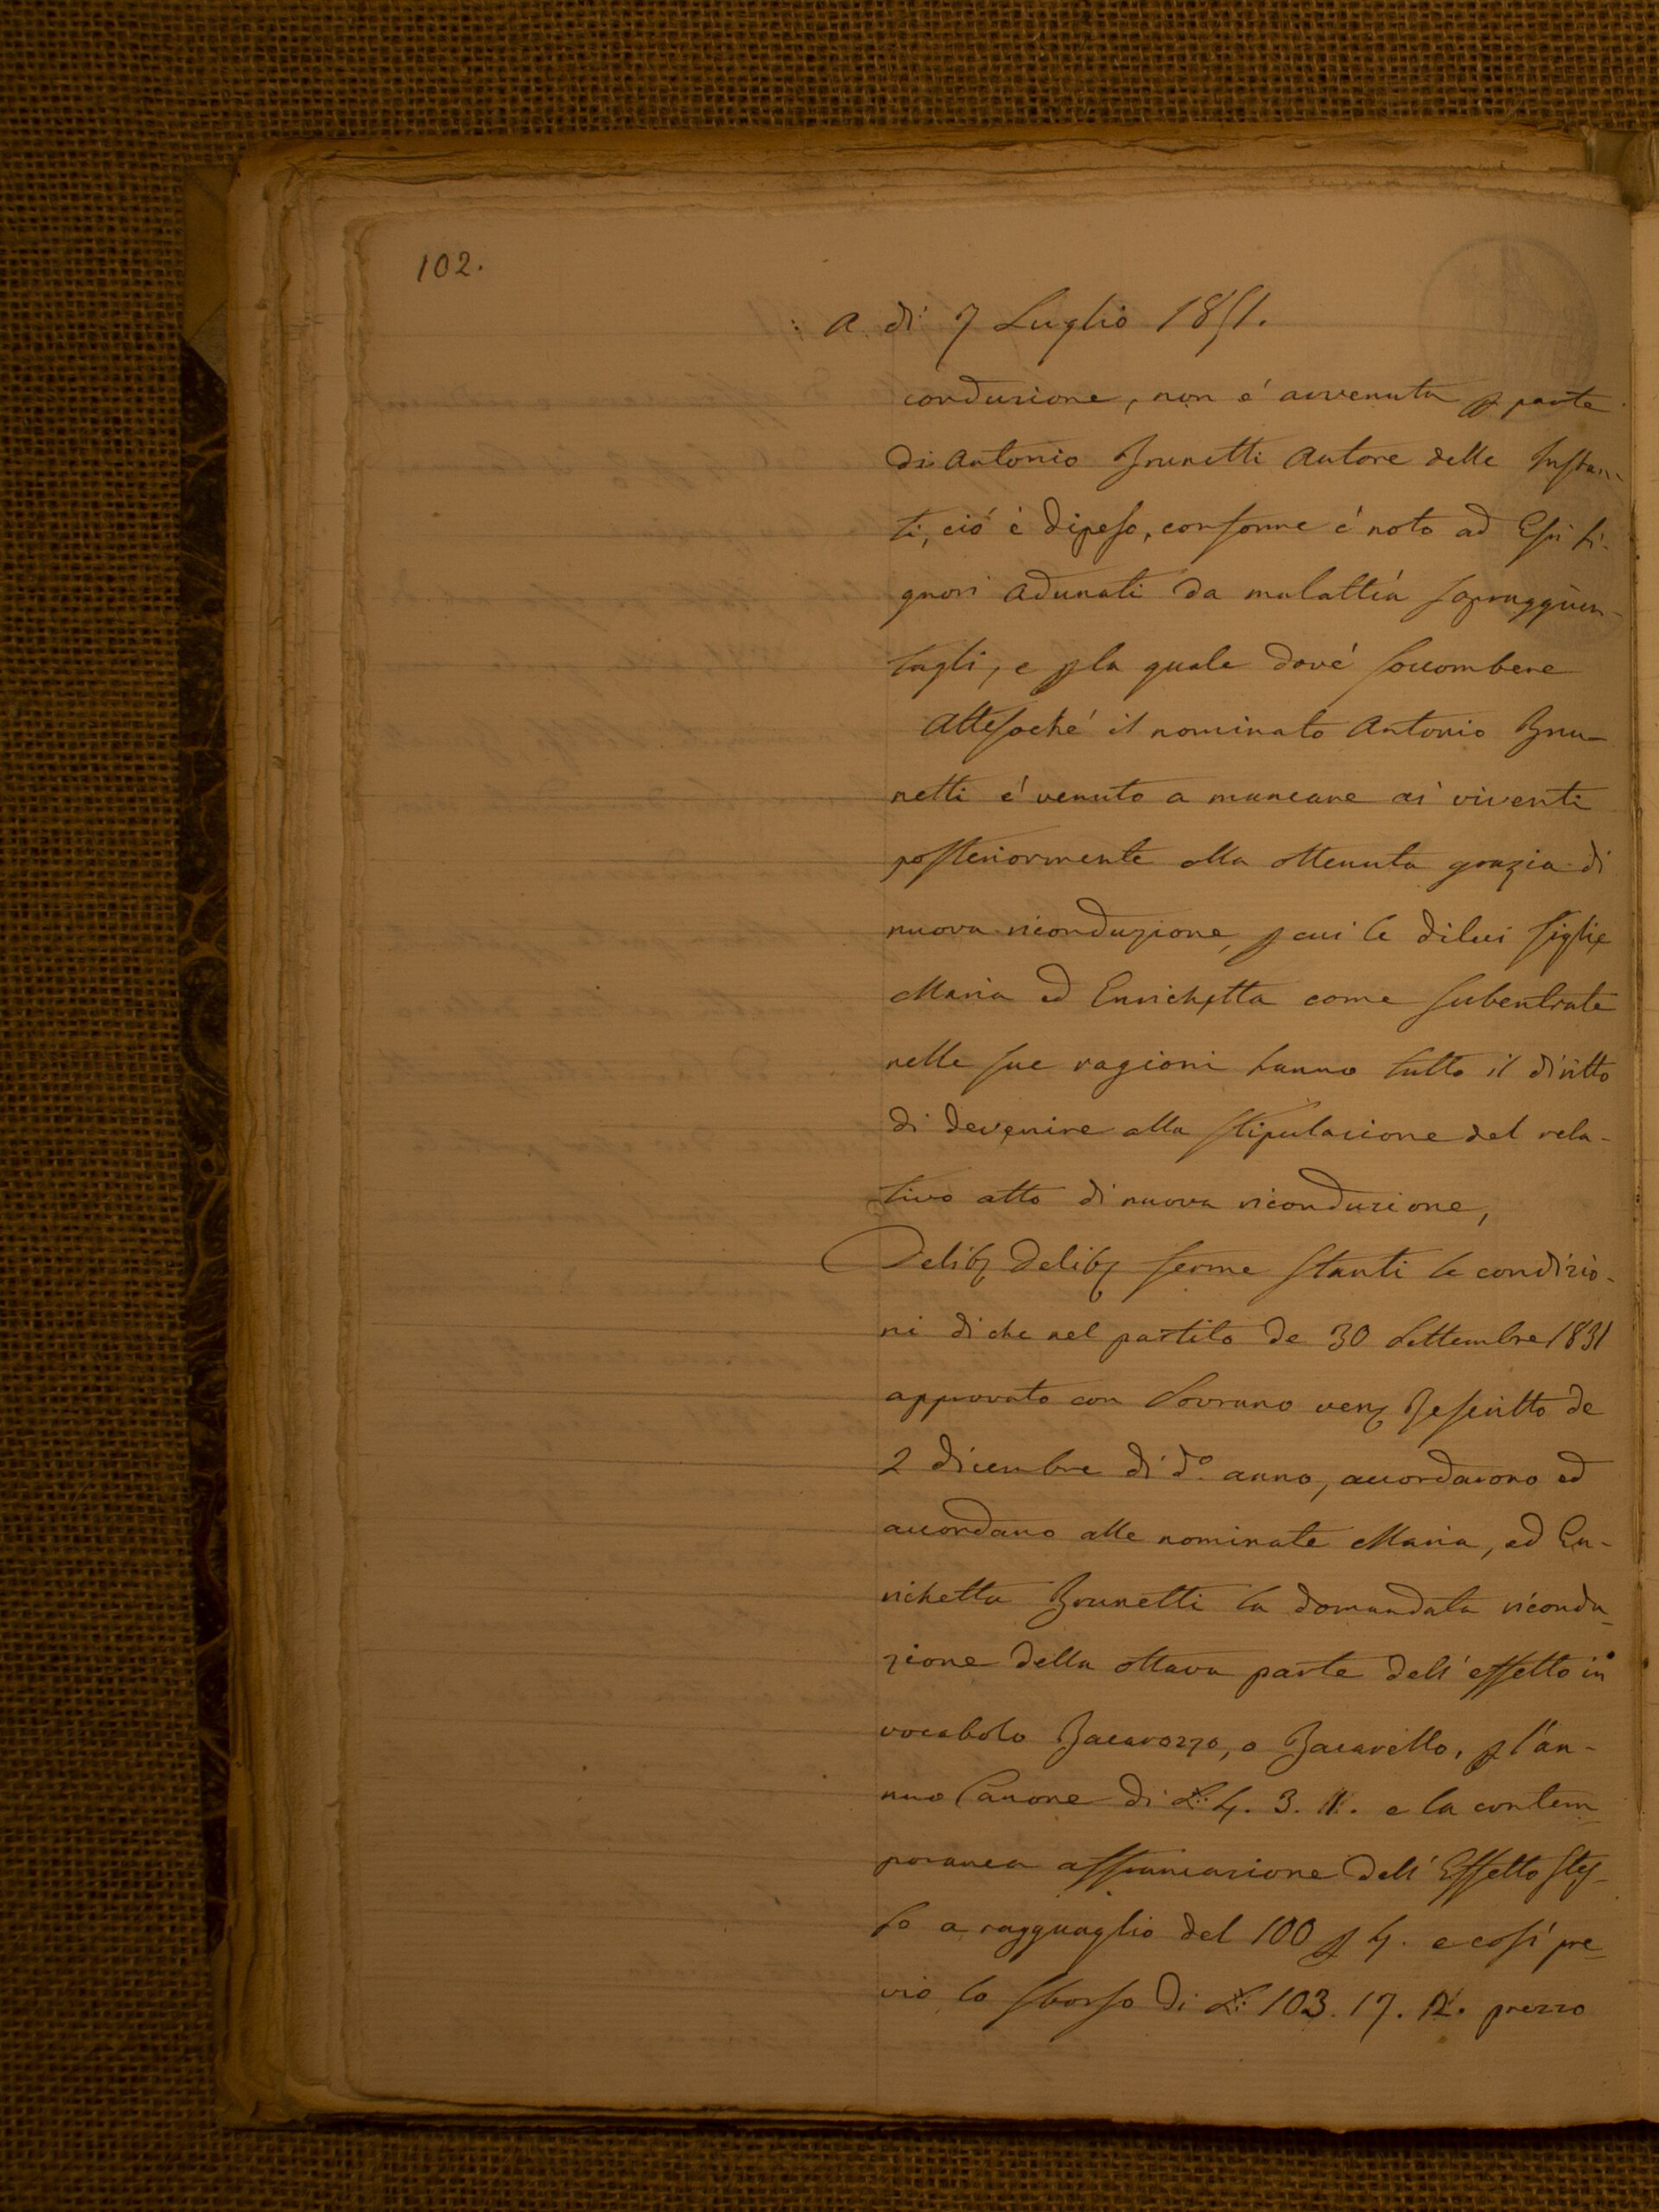 102.
A dì 7 Luglio 1851.
conduzione, non é avvenuta p parte
di Antonio Brunetti Autore delle Instan-
ti, ció è dipeso, conforme é noto ad Essi Si-
gnori Adunati da malattia sopraggiun-
tagli, e p la quale dové soccombere
Attesoché il nominato Antonio Bru-
netti é venuto a mancare ai viventi
posteriormente alla ottenuta grazia di
nuova riconduzione, p cui le dilui figlie
Maria ed Enrichetta come subentrate
nelle sue ragioni hanno tutto il diritto
di devenire alla stipulazione del rela-
tivo atto di nuova riconduzione,
Delib Delib ferme stanti le condizio-
ni di che nel partito de 30 Settembre 1831
approvato con Sovrano ven Rescritto de
2 dicembre di do. anno, accordarono ed
accordano alle nominate Maria, ed En-
richetta Brunetti la domandata ricondu-
zione della ottava parte dell' effetto in
vocabolo Bacarozzo, o Bacarello, p l'an-
nuo Canone di £: 4. 3. 11. e la contem-
poranea affrancazione dell' Effetto stes-
so a ragguaglio del 100 p 4. e cosí pre-
vio lo sborso di £: 103. 17. prezzo